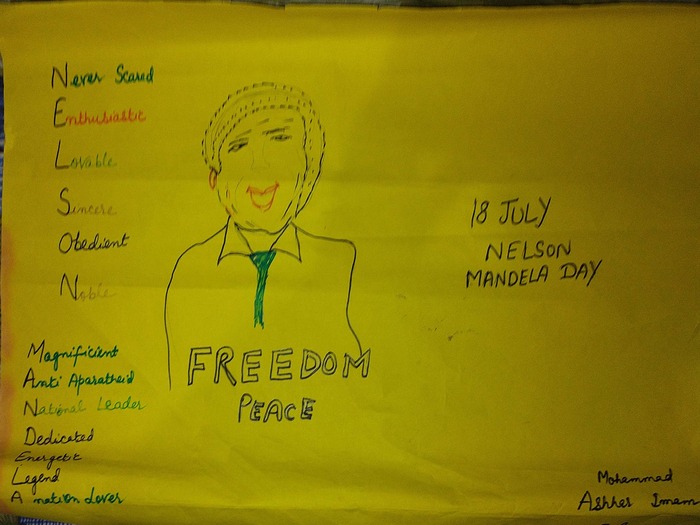 Never Scared
Enthusiastic
Lovable
Sincere
Obedient
Noble
Magnificient
Anti Aparatheid
National Leader
Dedicated
Energetic
Legend
A nation Lover
FREEDOM
PEACE
18 JULY
NELSON
MANDELA DAY
Mohammad
Ashher Imam